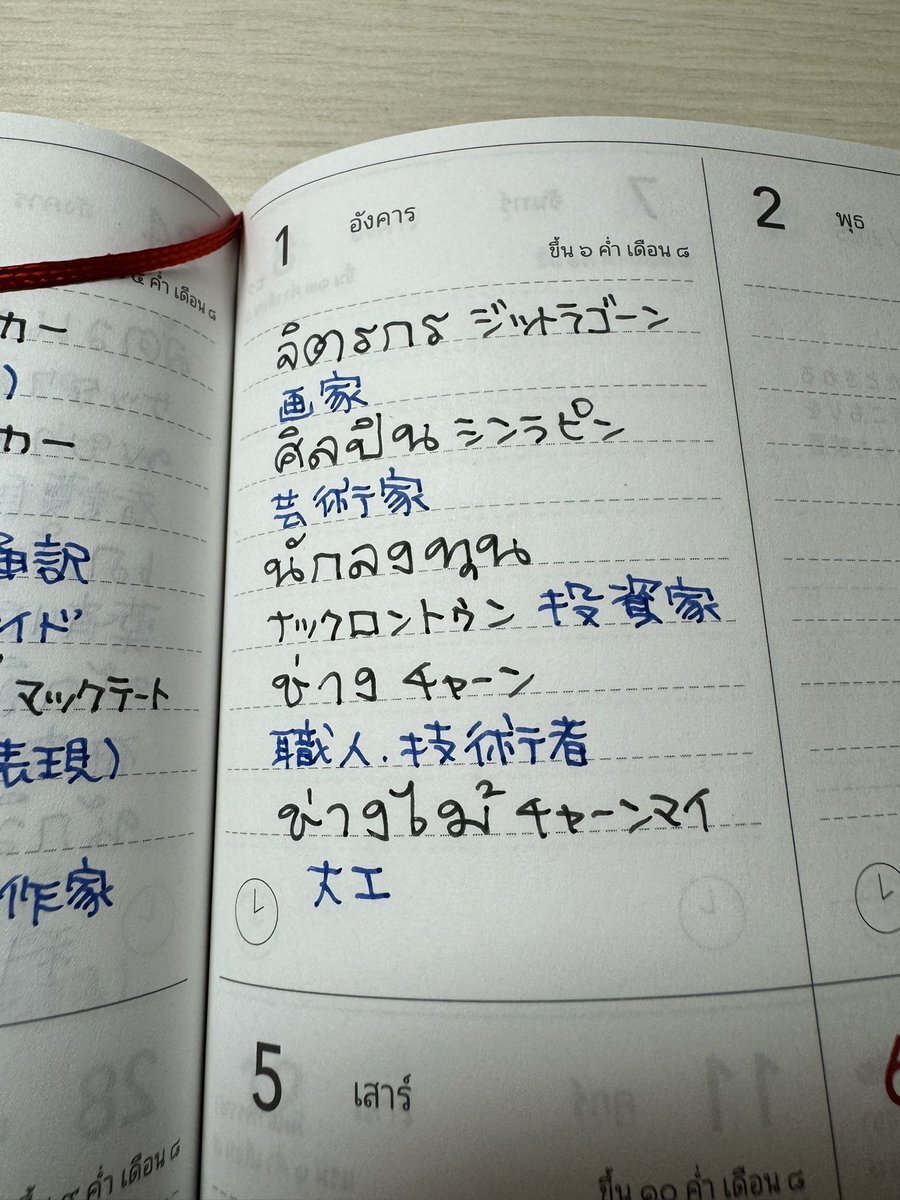 ๕ ค่ำ เดือน ๘
カー
)
カー
通訳
イド
マックテート
表現)
作家
1 อังคาร
ขึ้น ๖ ค่ำ เดือน ๘
จิตรกร ジットラゴーン
画家
ศิลปิน シンラピン
芸術家
นักลงทุน
ナックロントゥン 投資家
ช่าง チャーン
職人.技術者
ช่างไม้ チャーンマイ
大工
2 พุธ
5 เสาร์
ขึ้น ๑๐ ค่ำ เดือน ๘
6
ค่ำ เดือน ๘